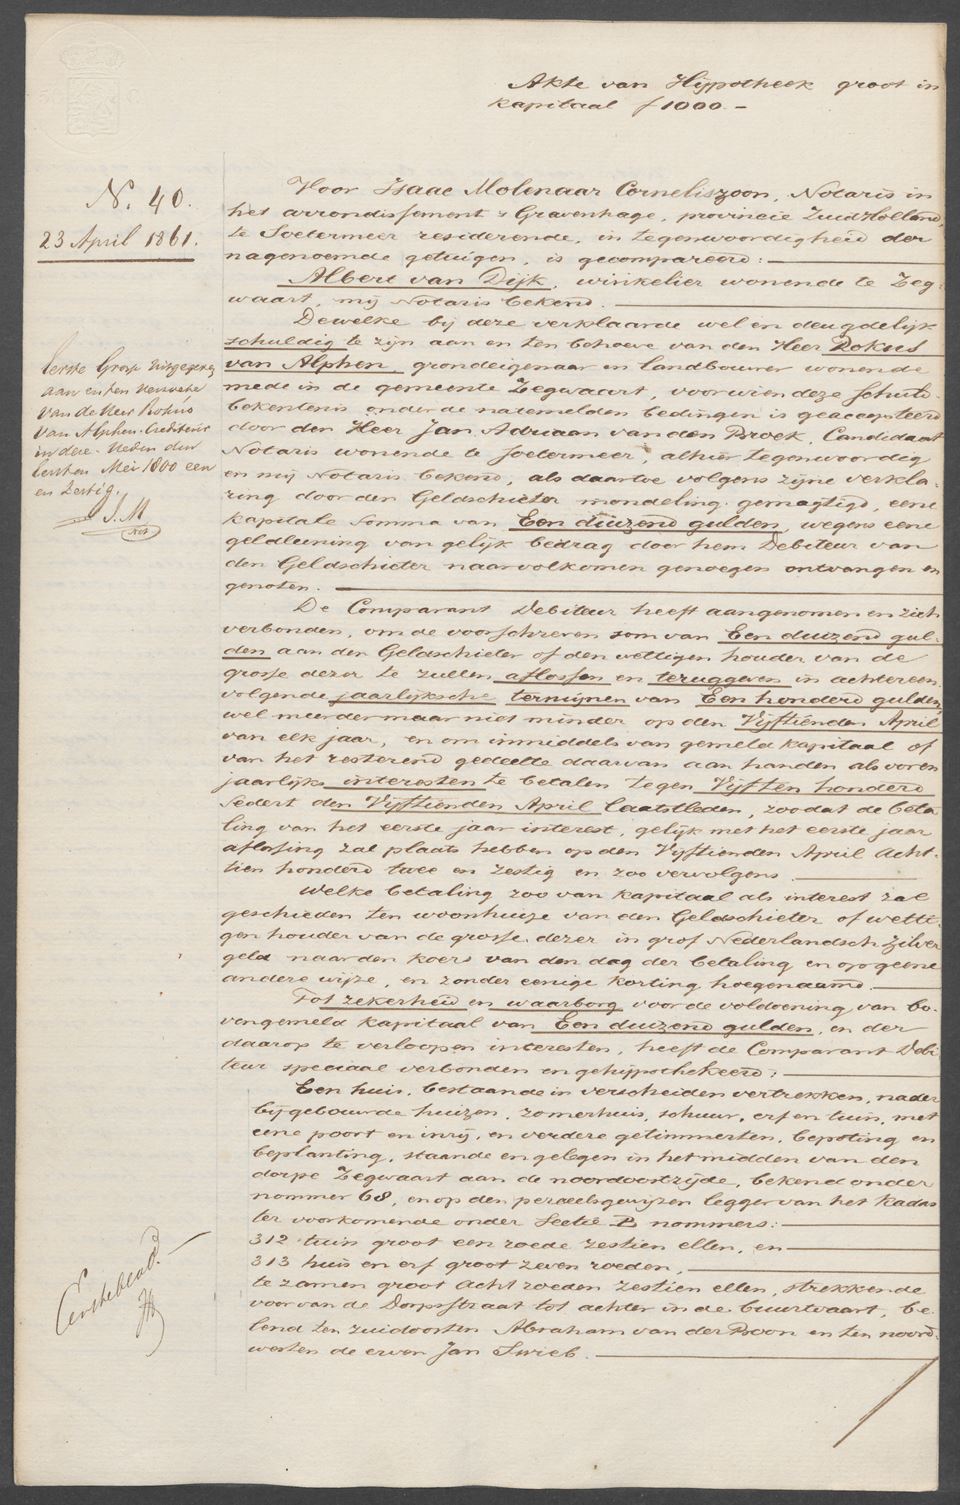 Akte van Hijpotheek groot in
kapitaal f 1000.-
N. 40.
23 April 1861.
Voor Isaac Molenaar Corneliszoon, Notaris in
het arrondissement s Gravenhage, provincie Zuidholland,
te Soetermeer resideerende, in tegenwoordigheid der
nagenoemde getuigen, is gecompareerd:
Albert van Dijk, winkelier wonende te Zeg-
waart, mij Notaris bekend.
Dewelke bij deze verklaarde wel en deugdelijk
schuldig te zijn aan en ten behoeve van den Heer Rokus
van Alphen, grondeigenaar en landbouwer wonende
mede in de gemeente Zegwaart, voor wien deze Schuld-
bekentenis onder de natemelden bedingen is geaccepteerd
door den Heer Jan Adriaan van den Broek, Candidaat
Notaris wonende te Soetermeer, alhier tegenwoordig
en mij Notaris bekend, als daartoe volgens zijne verkla-
ring door den Geldschieter mondeling gemagtigd, eene
kapitale Somma van Een duizend gulden, wegens eene
geldleening van gelijk bedrag door hem Debiteur van
den Geldschieter naar volkomen genoegen ontvangen en
genoten.
Eerste Grosse uitgegeven
aan en ten verzoeke
van de Heer Rokus
van Alphen. Crediteur
in deze. Heden den
Eersten Mei 1800 een
en Zestig.
I. M
Not
De Comparant Debiteur heeft aangenomen en zich
verbonden, om de voorschreven som van Een duizend gul-
den aan den Geldschieter of den wettigen houder van de
grosse dezer te zullen aflossen en teruggeven in achtereen
volgende jaarlijksche termijnen van Een honderd gulden,
wel meerder maar niet minder op den Vijftienden April
van elk jaar, en om inmiddels van gemeld kapitaal of
van het resterend gedeelte daarvan aan handen als voren
jaarlijks interesten te betalen tegen Vijf ten honderd
Sedert den Vijftienden April laatstleden, zoodat de beta-
ling van het eerste jaar interest, gelijk met het eerste jaar
aflossing zal plaats hebben op den Vijftienden April Acht-
tien honderd twee en zestig en zoo vervolgens.
Welke betaling zoo van kapitaal als interest zal
geschieden ten woonhuize van den Geldschieter of wetti-
gen houder van de grosse dezer in grof Nederlandsch zilver
geld naar den koers van den dag der betaling en op geene
andere wijze, en zonder eenige korting hoegenaamd.
Tot zekerheid en waarborg voor de voldoening van bo-
vengemeld kapitaal van Een duizend gulden, en der
daarop te verloopen interesten, heeft de Comparant Debi-
teur speciaal verbonden en gehijpothekeerd:
Een huis, bestaande in verscheiden vertrekken, nader
bijgebouwde huizen, zomerhuis, schuur, erf en tuin, met
eene poort en inrij, en verdere getimmerten, bepoting en
beplanting, staande en gelegen in het midden van den
dorpe Zegwaart aan de noordoostzijde, bekend onder
nommer 68, en op den perceelsgewijzen legger van het Kadas
ter voorkomende onder Sectie B nommers:
312 tuin groot een roede zestien ellen, en
313 huis en erf groot zeven roeden,
te zamen groot Acht roeden zestien ellen, strekkende
voor van de Dorpsstraat tot achter in de buurtvaart, be-
lend ten zuidoosten Abraham van der Boon en ten noord
westen de erven Jan Swieb.
Eersteblad.